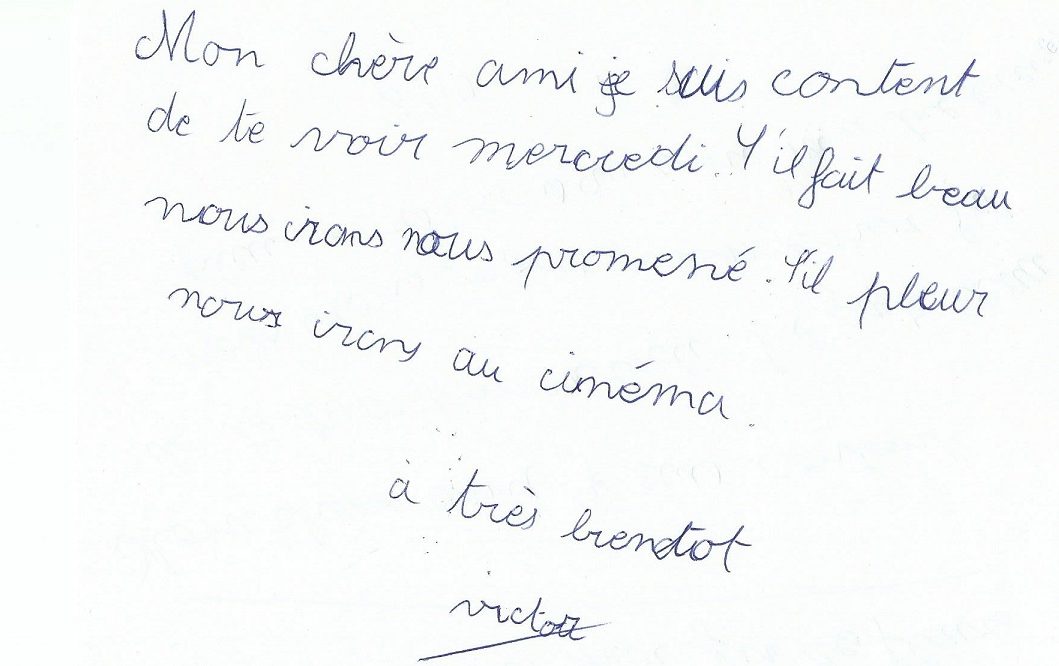 Mon chère ami je suis content
de te voir mercredi. S'il fait beau
nous irons nous promené. S'il pleur
nous irons au cinéma.
à très bientot
victor